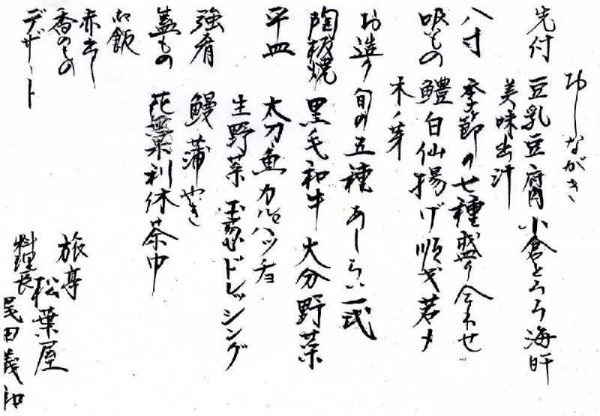 おしながき
先付 豆乳豆腐 小倉とろろ 海肝
美味出汁
八寸 季節の七種盛り合わせ
吸もの 鱧白仙揚げ 順才 若メ
木ノ芽
お造り 旬の五種 あしらい一式
陶板焼 黒毛和牛 大分野菜
平皿 太刀魚カルパッチョ
生野菜 玉ねぎドレッシング
強肴 鰻蒲やき
蓋もの 花無菓利休茶巾
御飯
赤出し
香のもの
デザート
旅亭 松葉屋
料理長 田義